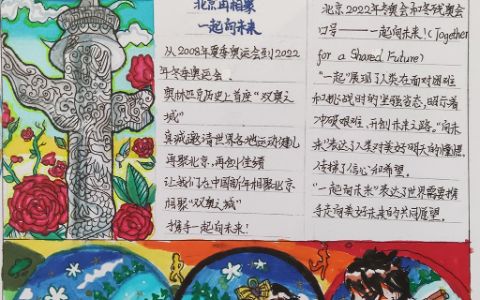 北京再相聚
一起向未来
从2008年夏季奥运会到2022
年冬季奥运会
奥林匹克历史上首座“双奥之
城”
真诚邀请世界各地运动健儿
再聚北京，再创佳绩
让我们在中国新年相聚北京
相聚“双奥之城”
携手一起向未来！
北京2022年冬奥会和冬残奥会
口号——一起向未来！(Together
for a Shared Future)
“一起”展现了人类在面对困难
和挑战时的坚强姿态，昭示着
冲破艰难、开创未来之路。“向未
来”表达了人类对美好明天的憧憬，
传择了信心和希望。
“一起向未来”表达了世界需要携
手走向美好未来的共同愿望。